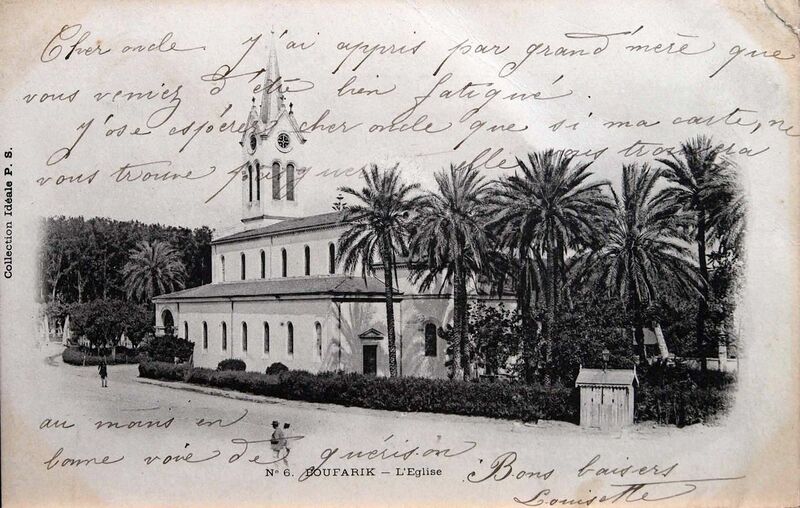 Cher oncle. J'ai appris par grand'mère que
vous veniez d'être bien fatigué.
J'ose espérer cher oncle que si ma carte, ne
vous trouve pas elle vous trouvera
au moins en
bonne voie de guérison
Bons baisers
Louisette
Nº 6. BOUFARIK – L'Eglise
Collection Idéale P. S.